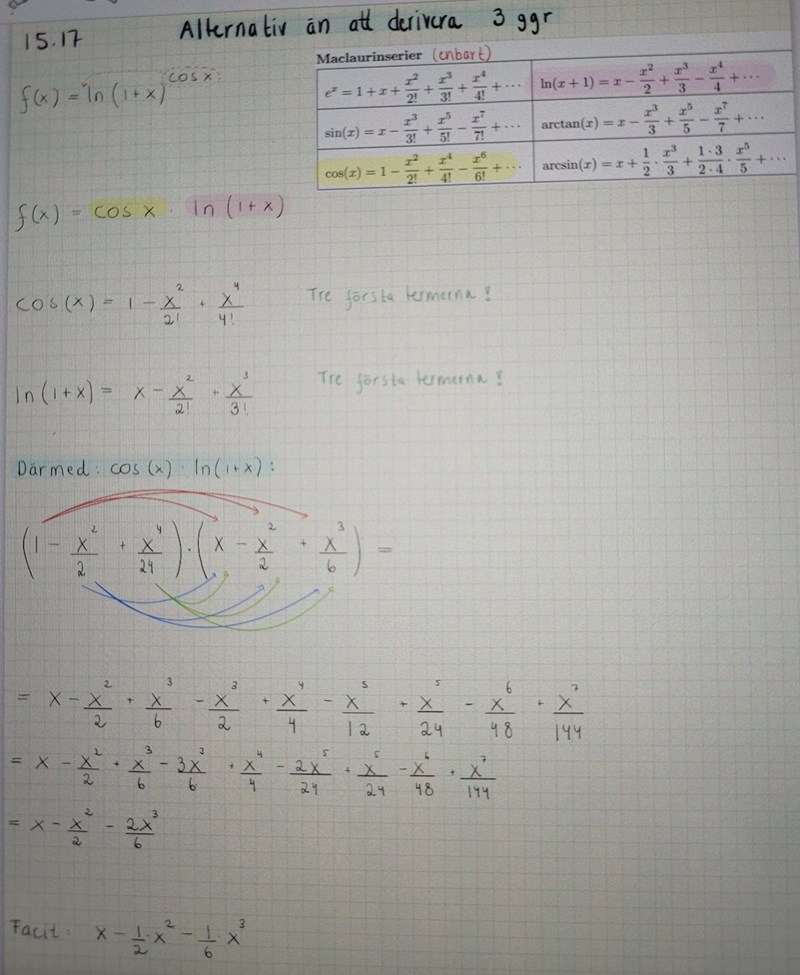 15.17 Alternativ än att derivera 3 ggr
Maclaurinserier (enbart)
f(x) = ln (1+x)^cos x :
e^x = 1 + x + x^2/2! + x^3/3! + x^4/4! + ⋯
ln(x + 1) = x − x^2/2 + x^3/3 − x^4/4 + ⋯
sin(x) = x − x^3/3! + x^5/5! − x^7/7! + ⋯
arctan(x) = x − x^3/3 + x^5/5 − x^7/7 + ⋯
cos(x) = 1 − x^2/2! + x^4/4! − x^6/6! + ⋯
arcsin(x) = x + 1/2 · x^3/3 + 1·3/2·4 · x^5/5 + ⋯
f(x) = cos x · ln (1+x)
cos(x) = 1 − x^2/2! + x^4/4! Tre första termerna!
ln(1+x) = x − x^2/2! + x^3/3! Tre första termerna!
Därmed: cos(x) · ln(1+x):
(1 − x^2/2 + x^4/24) · (x − x^2/2 + x^3/6) =
= x − x^2/2 + x^3/6 − x^3/2 + x^4/4 − x^5/12 + x^5/24 − x^6/48 + x^7/144
= x − x^2/2 + x^3/6 − 3x^3/6 + x^4/4 − 2x^5/24 + x^5/24 − x^6/48 + x^7/144
= x − x^2/2 − 2x^3/6
Facit: x − 1/2 · x^2 − 1/6 · x^3